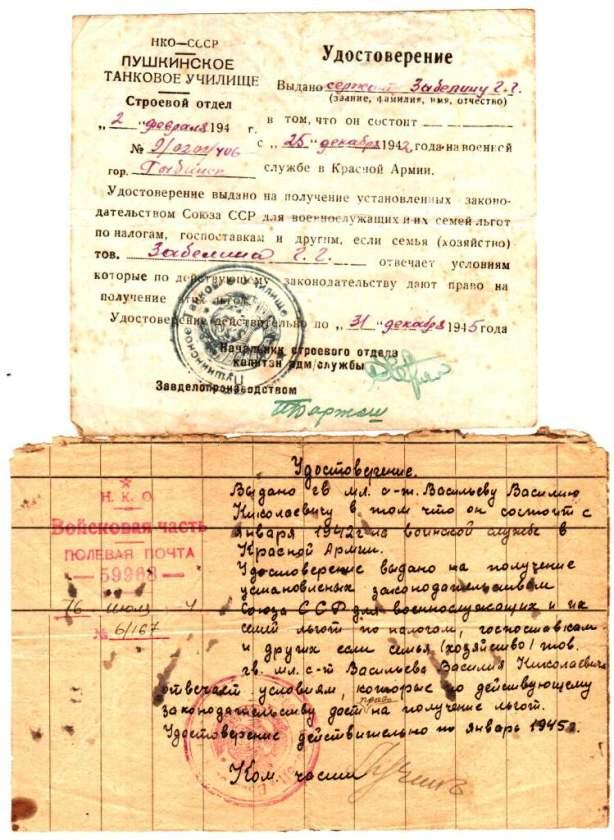 НКО—СССР
ПУШКИНСКОЕ
ТАНКОВОЕ УЧИЛИЩЕ
Строевой отдел
„2“ февраля 194 г.
№ 9/0201/406
гор. Рыбинск
Удостоверение
Выдано сержант Забелину Г. Г.
(звание, фамилия, имя, отчество)
в том, что он состоит
с „25“ декабря 1942 года на военной
службе в Красной Армии.
Удостоверение выдано на получение установленных законо-
дательством Союза ССР для военнослужащих и их семей льгот
по налогам, госпоставкам и другим, если семья (хозяйство)
тов. Забелина Г. Г. отвечает условиям
которые по действующему законодательству дают право на
получение этих льгот.
Удостоверение действительно по „31“ декабря 1945 года
Начальник строевого отдела
капитан адм/службы
Завделопроизводством
Удостоверение.
Н. К. О.
Войсковая часть
ПОЛЕВАЯ ПОЧТА
— 59988 —
16 июля 4
№ 6/167
Выдано гв мл. с-т. Васильеву Василию
Николаевичу в том что он состоит с
января 1942г на воинской службе в
Красной Армии.
Удостоверение выдано на получение
установленых законодательством
Союза С С Р для военнослужащих и их
семей льгот по налогом, госпоставкам
и других если семья (хозяйство) тов.
гв. мл. с-т Васильева Василия Николаевича
отвечает условиям, которые по действующему
законодательству дост право на получение льгот.
Удостоверение действительно по январь 1945г.
Ком. части